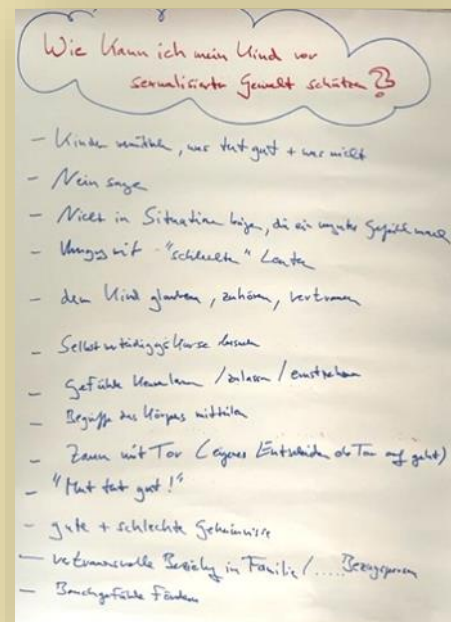 Wie kann ich mein Kind vor
sexualisierter Gewalt schützen ?
- Kinder, was tut gut + was nicht
- Nein sagen
- Nicht in Situation, die ein Gefühl
- Umgang mit "schlechten" Leuten
- dem Kind glauben, zuhören, vertrauen
- Selbstverteidigungskurse besuchen
- Gefühle kennenlernen / zulassen / ernstnehmen
- Begriffe des Körpers mitteilen
- Zaun mit Tor (eigenes Entscheiden ob Tor auf geht)
- "Mut tut gut!"
- gute + schlechte Geheimnisse
- vertrauensvolle Beziehung in Familie / .... Bezugsperson
- Bauchgefühle fördern